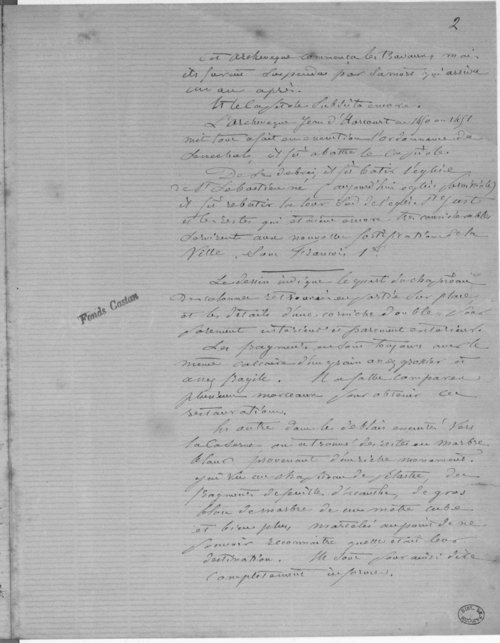 2
cet Archevêque commença les travaux, mais
ils furent suspendus par sa mort qui arriva
un an après.
Et le Capitole subsista encore.
L'Archevêque Jean d'Harcourt en 1450 ou 1451
mit tout à fait en exécution l'ordonnance du
il fit abattre le Capitole.
De ses débris, il fit bâtir l'église
de St Sebastienne (aujourd'hui église
il fit rebâtir la tour de l'église St Just
et les restes qui étaient encore très considérables
servirent aux nouvelles fortifications de la
Ville. Sous François 1er
Le dessin indique le quart du chapiteau
Des colonnes retrouvé en partie sur place
et les détails d'une corniche double pour
parement intérieur et parement extérieur.
Les fragments sont toujours avec le
même calcaire d'un grain assez grossier et
assez fragile. Il a fallu comparer
plusieurs morceaux pour obtenir ces
restaurations.
En outre dans les déblais vers
la Caserne on a trouvé des restes en marbre
blanc provenant d'un riche monument.
un chapiteau de pilastre, des
fragments de feuilles d'acanthe, de gros
blocs de marbre de un mètre cube
et bien plus, martelés au point de ne
pouvoir reconnaître quelle était leur
destination. Ils sont pour ainsi dire
complètement informes.
Fonds Castan